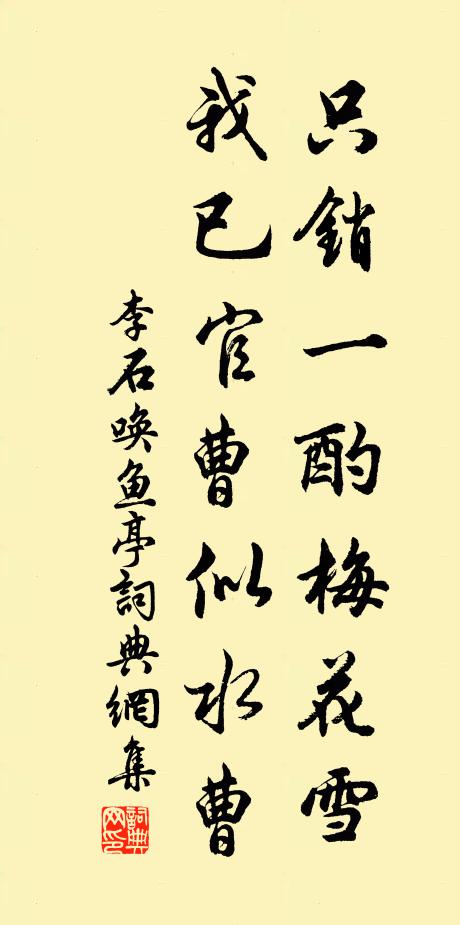 只銷一酌梅花雪
我已官曹似水曹
李石唤鱼亭詞典網集
詞典网印